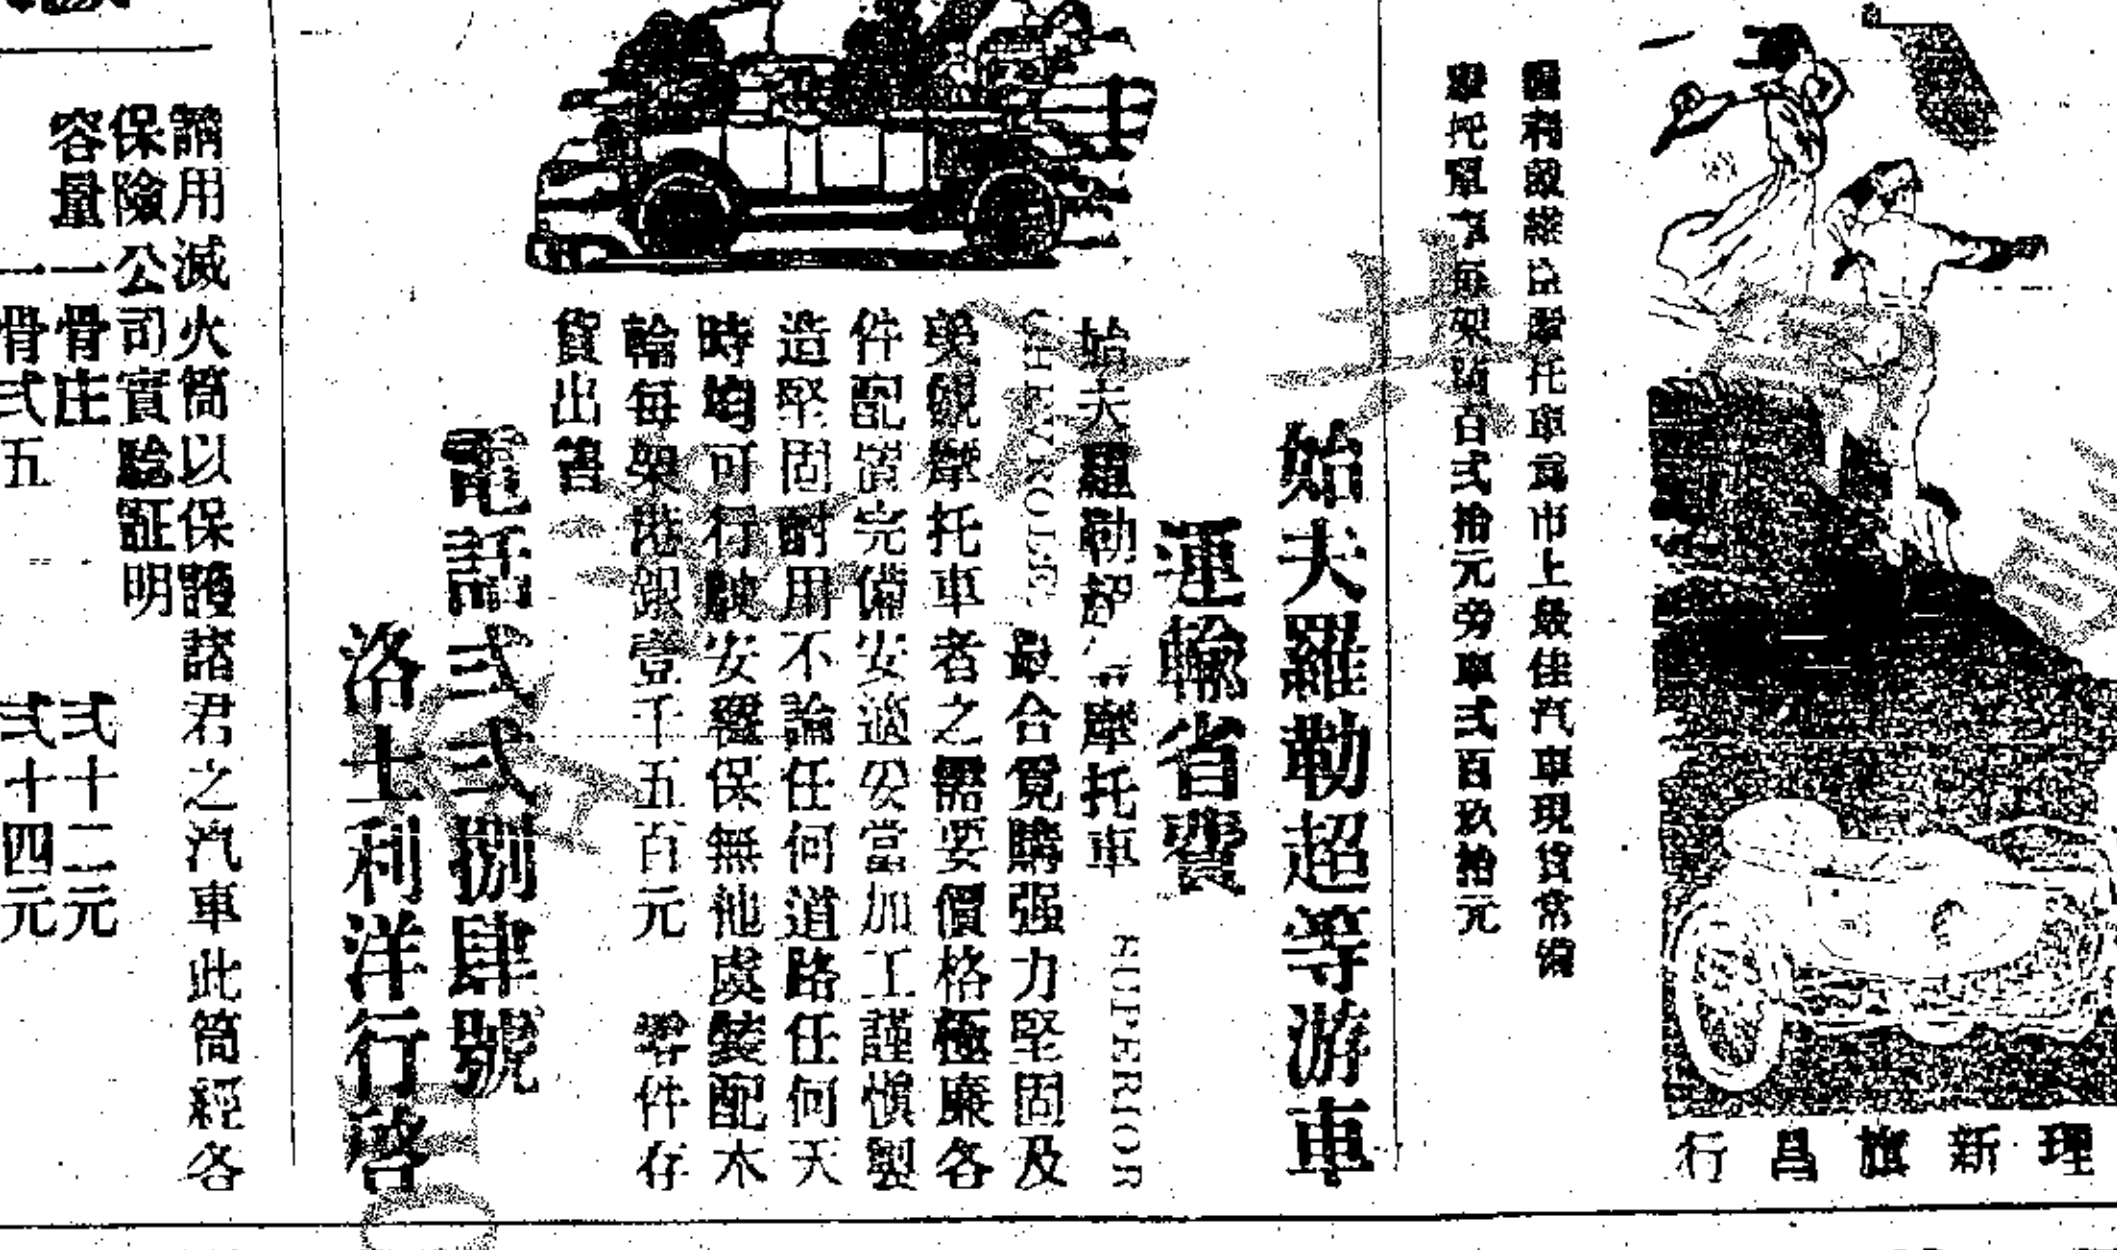 利
摩托車為市上最佳汽車現貨常備
托單車每架 百弍拾元旁車弍百玖拾元
理新旗昌行
始夫羅勒超等游車
運輸省費
始夫羅勒超 摩托車 SUPERIOR
CHEVROLE 最合覓購强力堅固及
美觀摩托車者之需要價格極廉各
件配置完備安適妥當加工謹慎製
造堅固耐用不論任何道路任何天
時均可行駛安穩保無他虞裝配木
輪每架 銀壹千五百元 零件存
貨出售
電話弍弍捌肆號
洛士利洋行啓
請用滅火筒以保護諸君之汽車此筒經各
保險公司實驗証明
容量一骨庄 弍十二元
一骨弍五 弍十四元